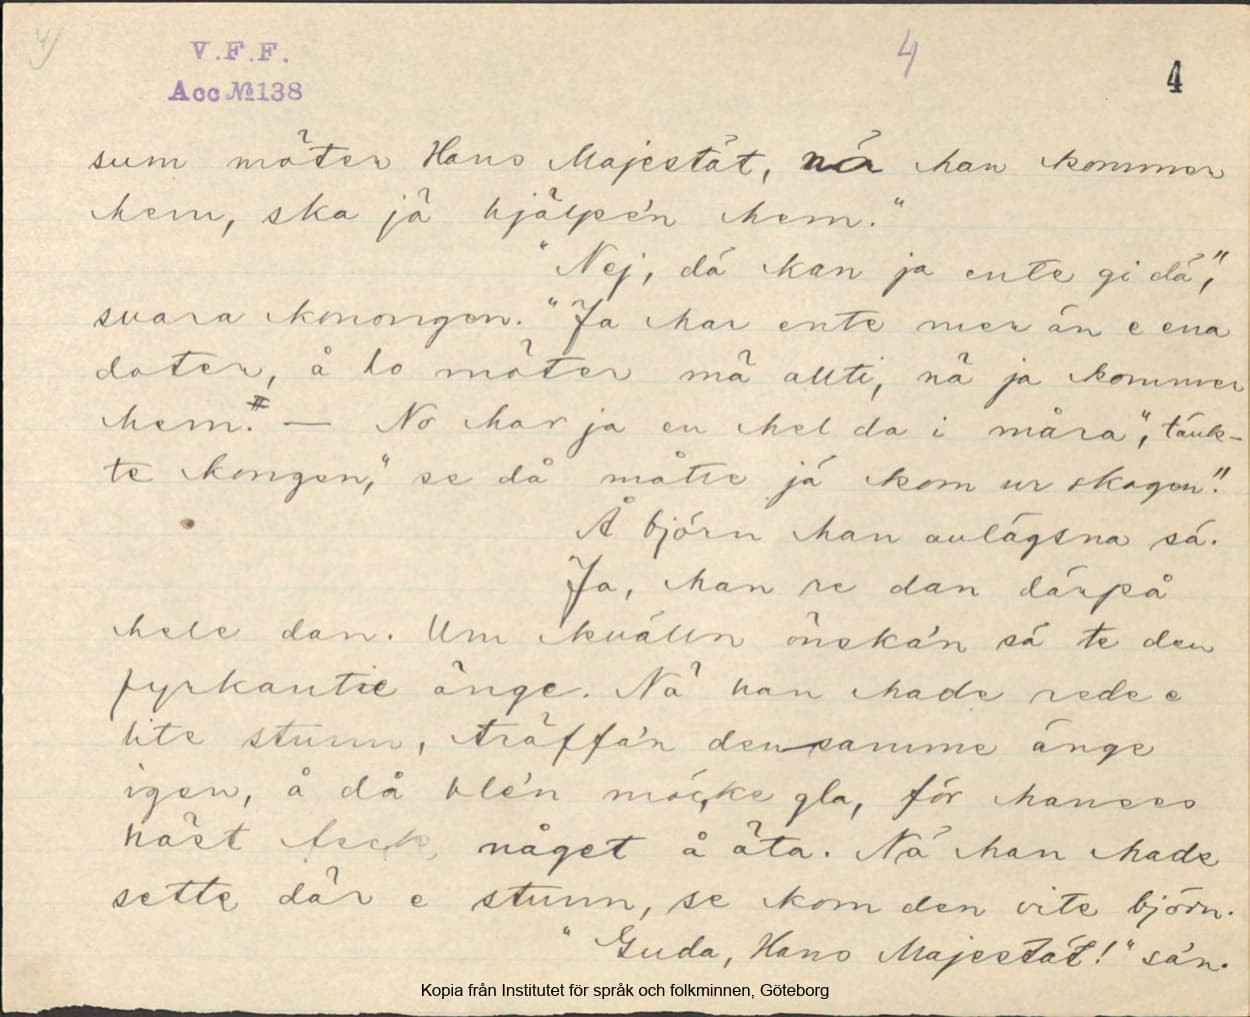 4)
V.F.F.
Acc № 138
4
4
sum möter Hans Majestät, nä han kommer
hem, ska jä hjälpe'n hem."
"Nej, dä kan ja ente gi dä",
svara konongen. "Ja har ente mer än e ena
dater, å ho möter mä allti, nä ja kommer
hem." — No har ja en hel da i måra", tänk-
te kongen," se då måtte jä kom ur skogen".
Å björn han avlägsna sä.
Ja, han re dan därpå
hele dan. Um kvälln önska'n sä te den
fyrkantie änge. Nä han hade rede e
lite stunn, träffa'n densamme änge
igen, å då ble'n möcke gla, för hanses
häst feck något å äta. Nä han hade
sette dä'r e stunn, se kom den vite björn.
"Guda, Hans Majestät!" sa'n.
Kopia från Institutet för språk och folkminnen, Göteborg